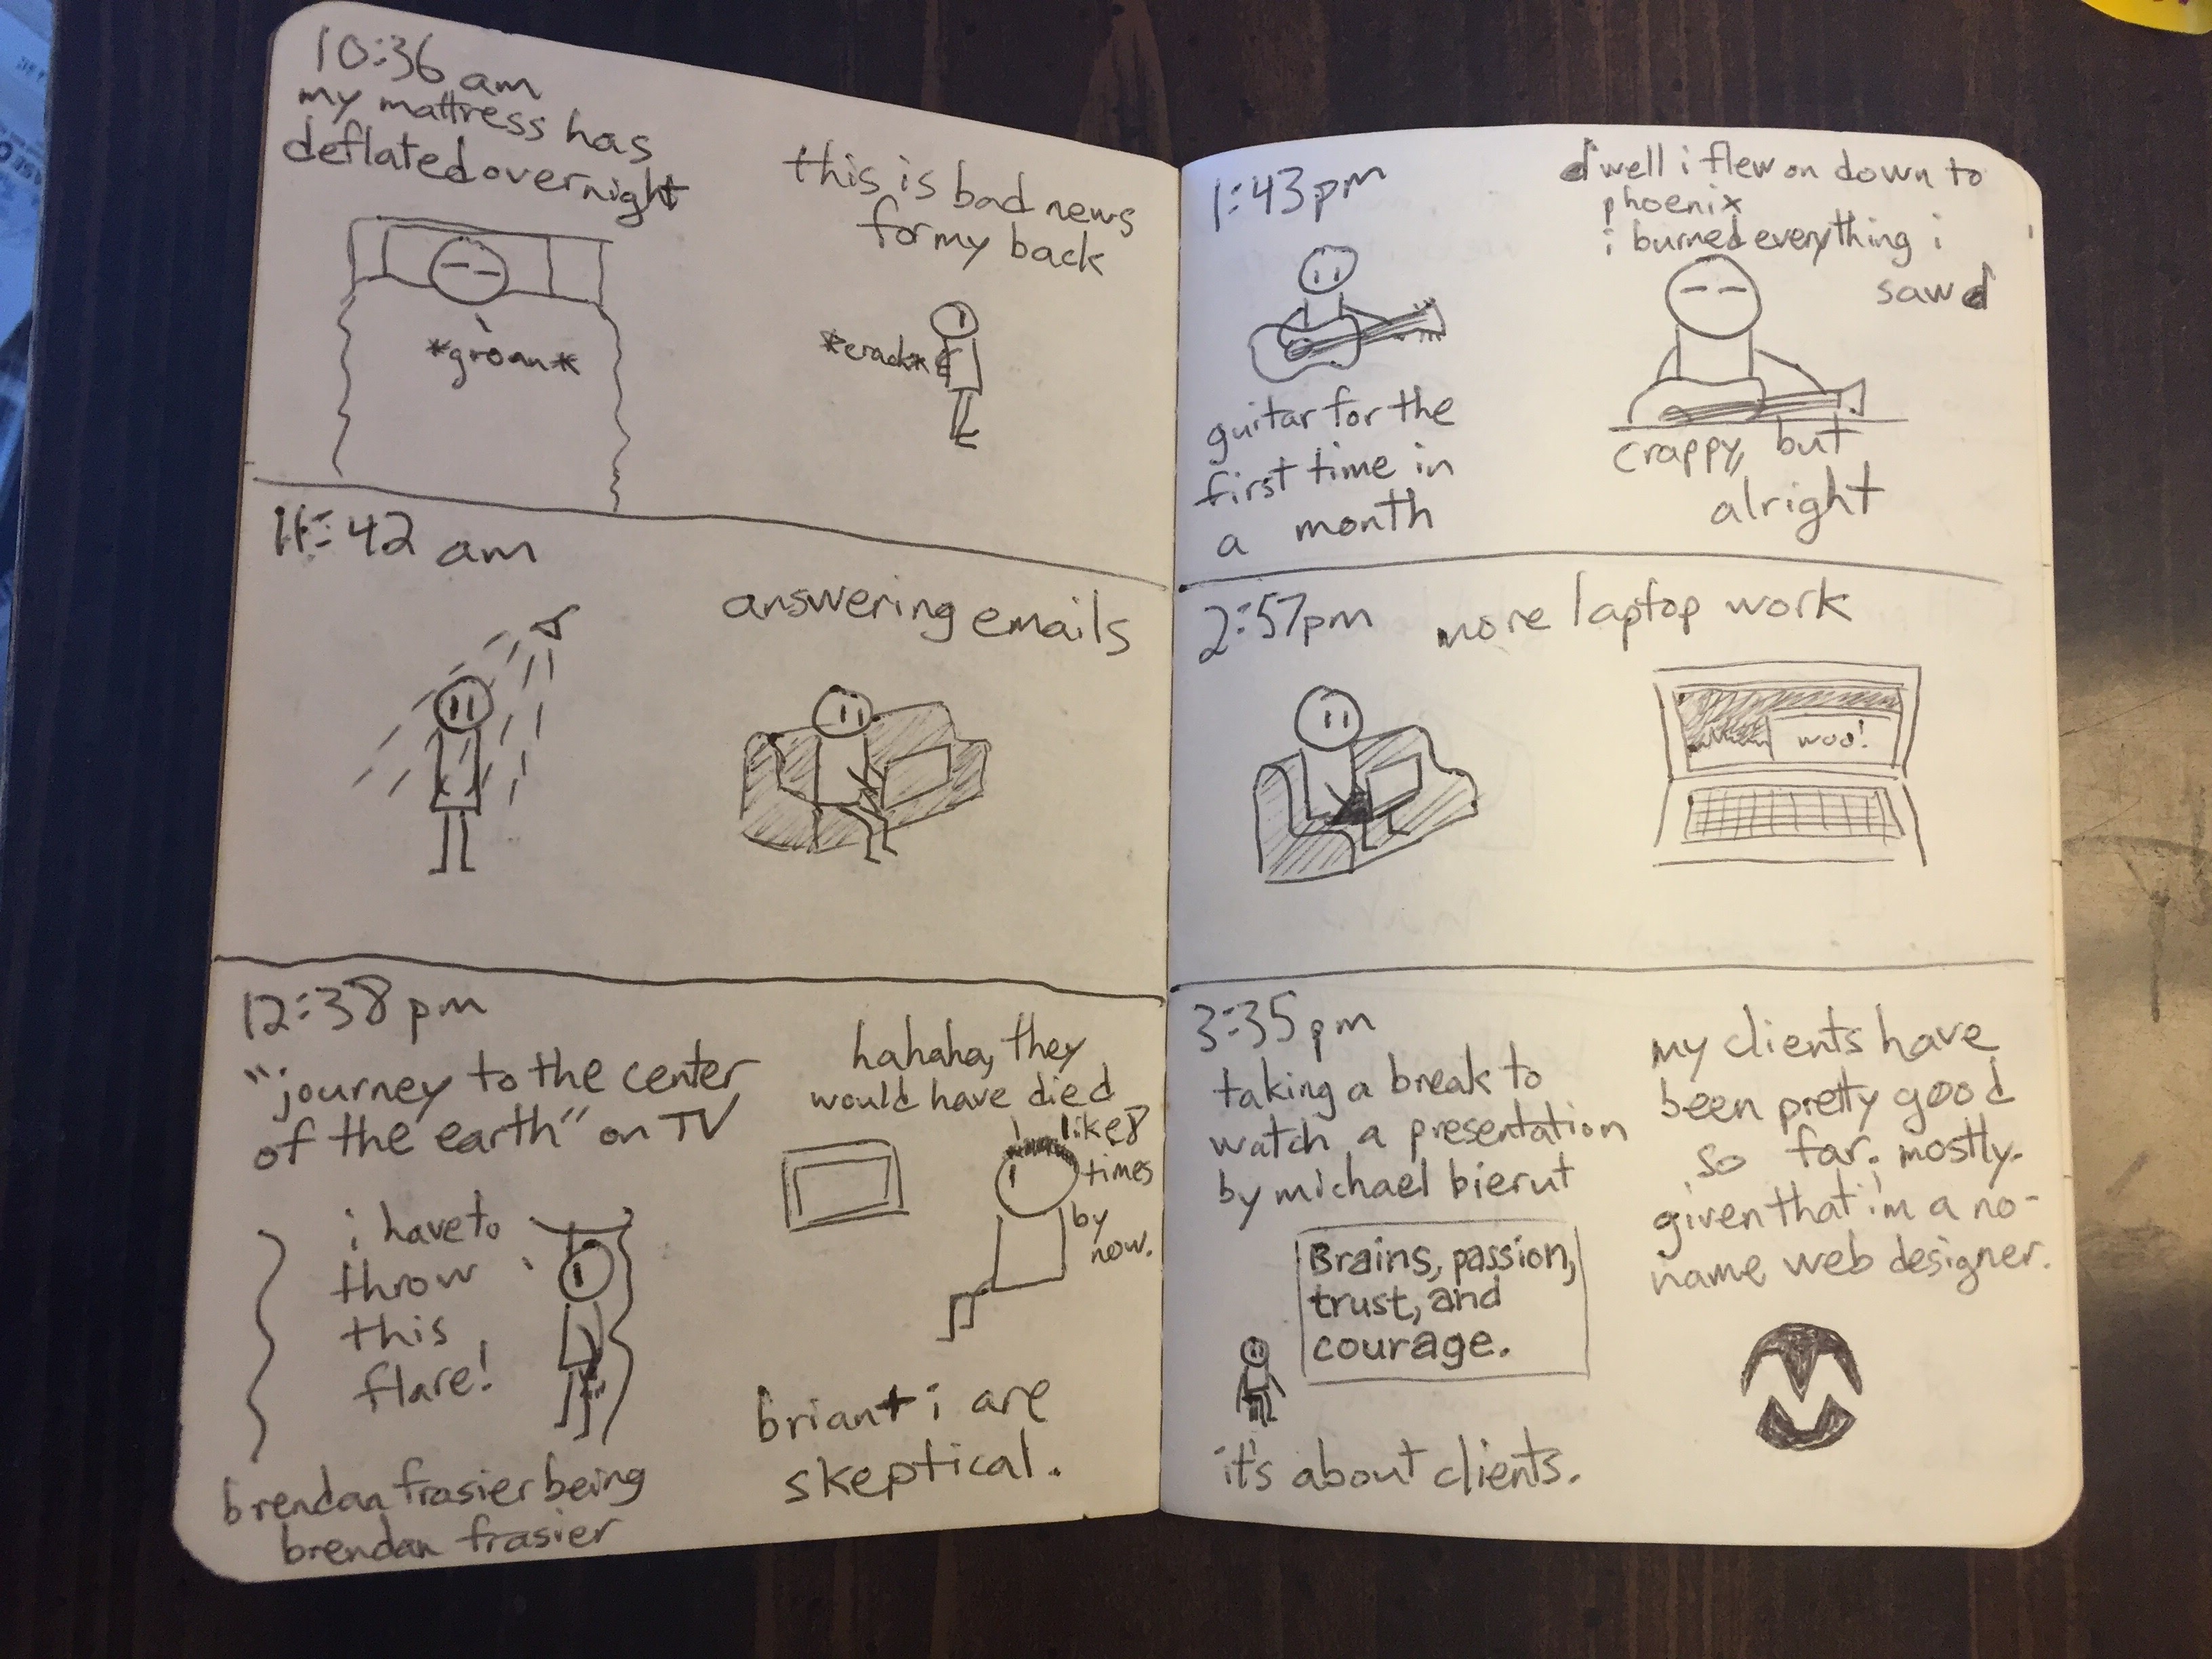 10:36 am
my mattress has
deflated overnight
*groan*
this is bad news
for my back
*crack*
11:42 am
answering emails
12:38 pm
"journey to the center
of the earth" on TV
i have to
throw
this
flare!
brendan frasier being
brendan frasier
hahaha, they
would have died
like 8
times
by
now.
brian + i are
skeptical.
1:43 pm
guitar for the
first time in
a month
♪ well i flew on down to
phoenix
i burned everything i
saw ♪
crappy, but
alright
2:57 pm
more laptop work
woo!
3:35 pm
taking a break to
watch a presentation
by michael bierut
Brains, passion,
trust, and
courage.
it's about clients.
my clients have
been pretty good
so far. mostly.
given that i'm a no-
name web designer.